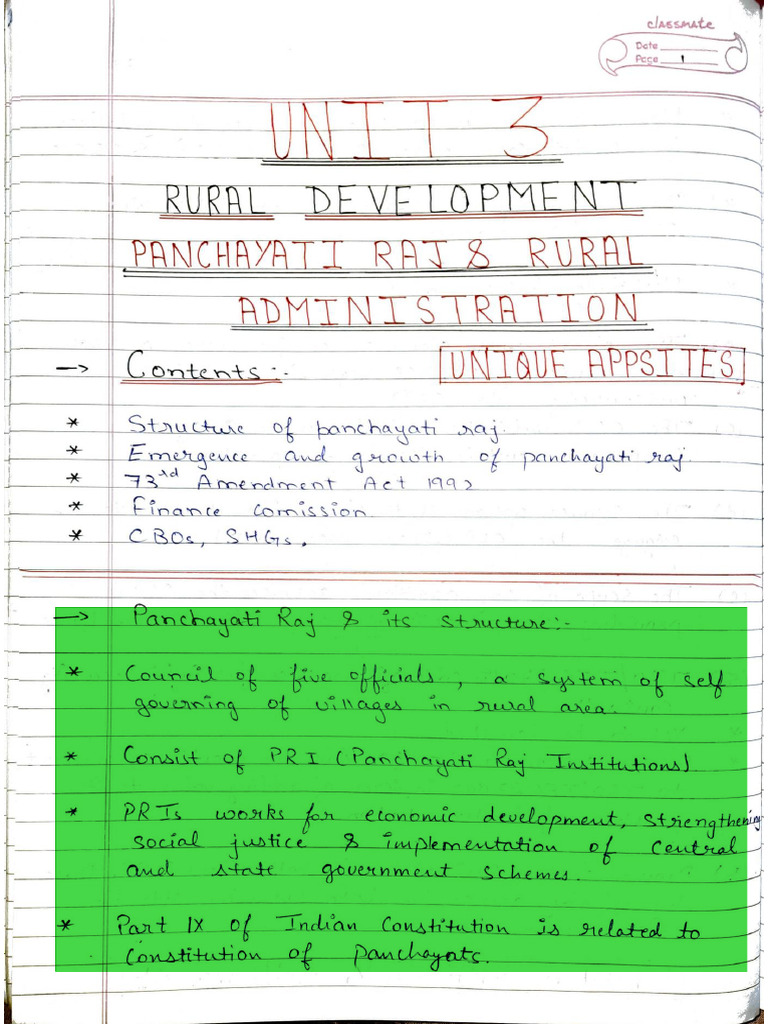 classmate
Date
Page 1
UNIT 3
RURAL DEVELOPMENT
PANCHAYATI RAJ & RURAL
ADMINISTRATION
→ Contents:-
UNIQUE APPSITES
* Structure of panchayati raj.
* Emergence and growth of panchayati raj.
* 73rd Amendment Act 1992
* Finance Comission
* CBOs, SHGs.
→ Panchayati Raj & its structure:-
* Council of five officials, a system of self
governing of villages in rural area.
* Consist of PRI (Panchayati Raj Institutions)
* PRIs works for economic development, strengthening
social justice & implementation of Central
and state government schemes.
* Part IX of Indian Constitution is related to
Constitution of panchayats.